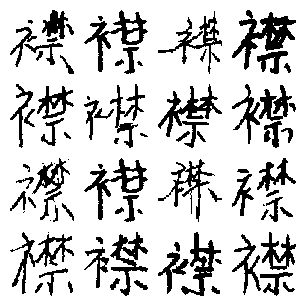 襟襟襟襟
襟襟襟襟
襟襟襟襟
襟襟襟襟